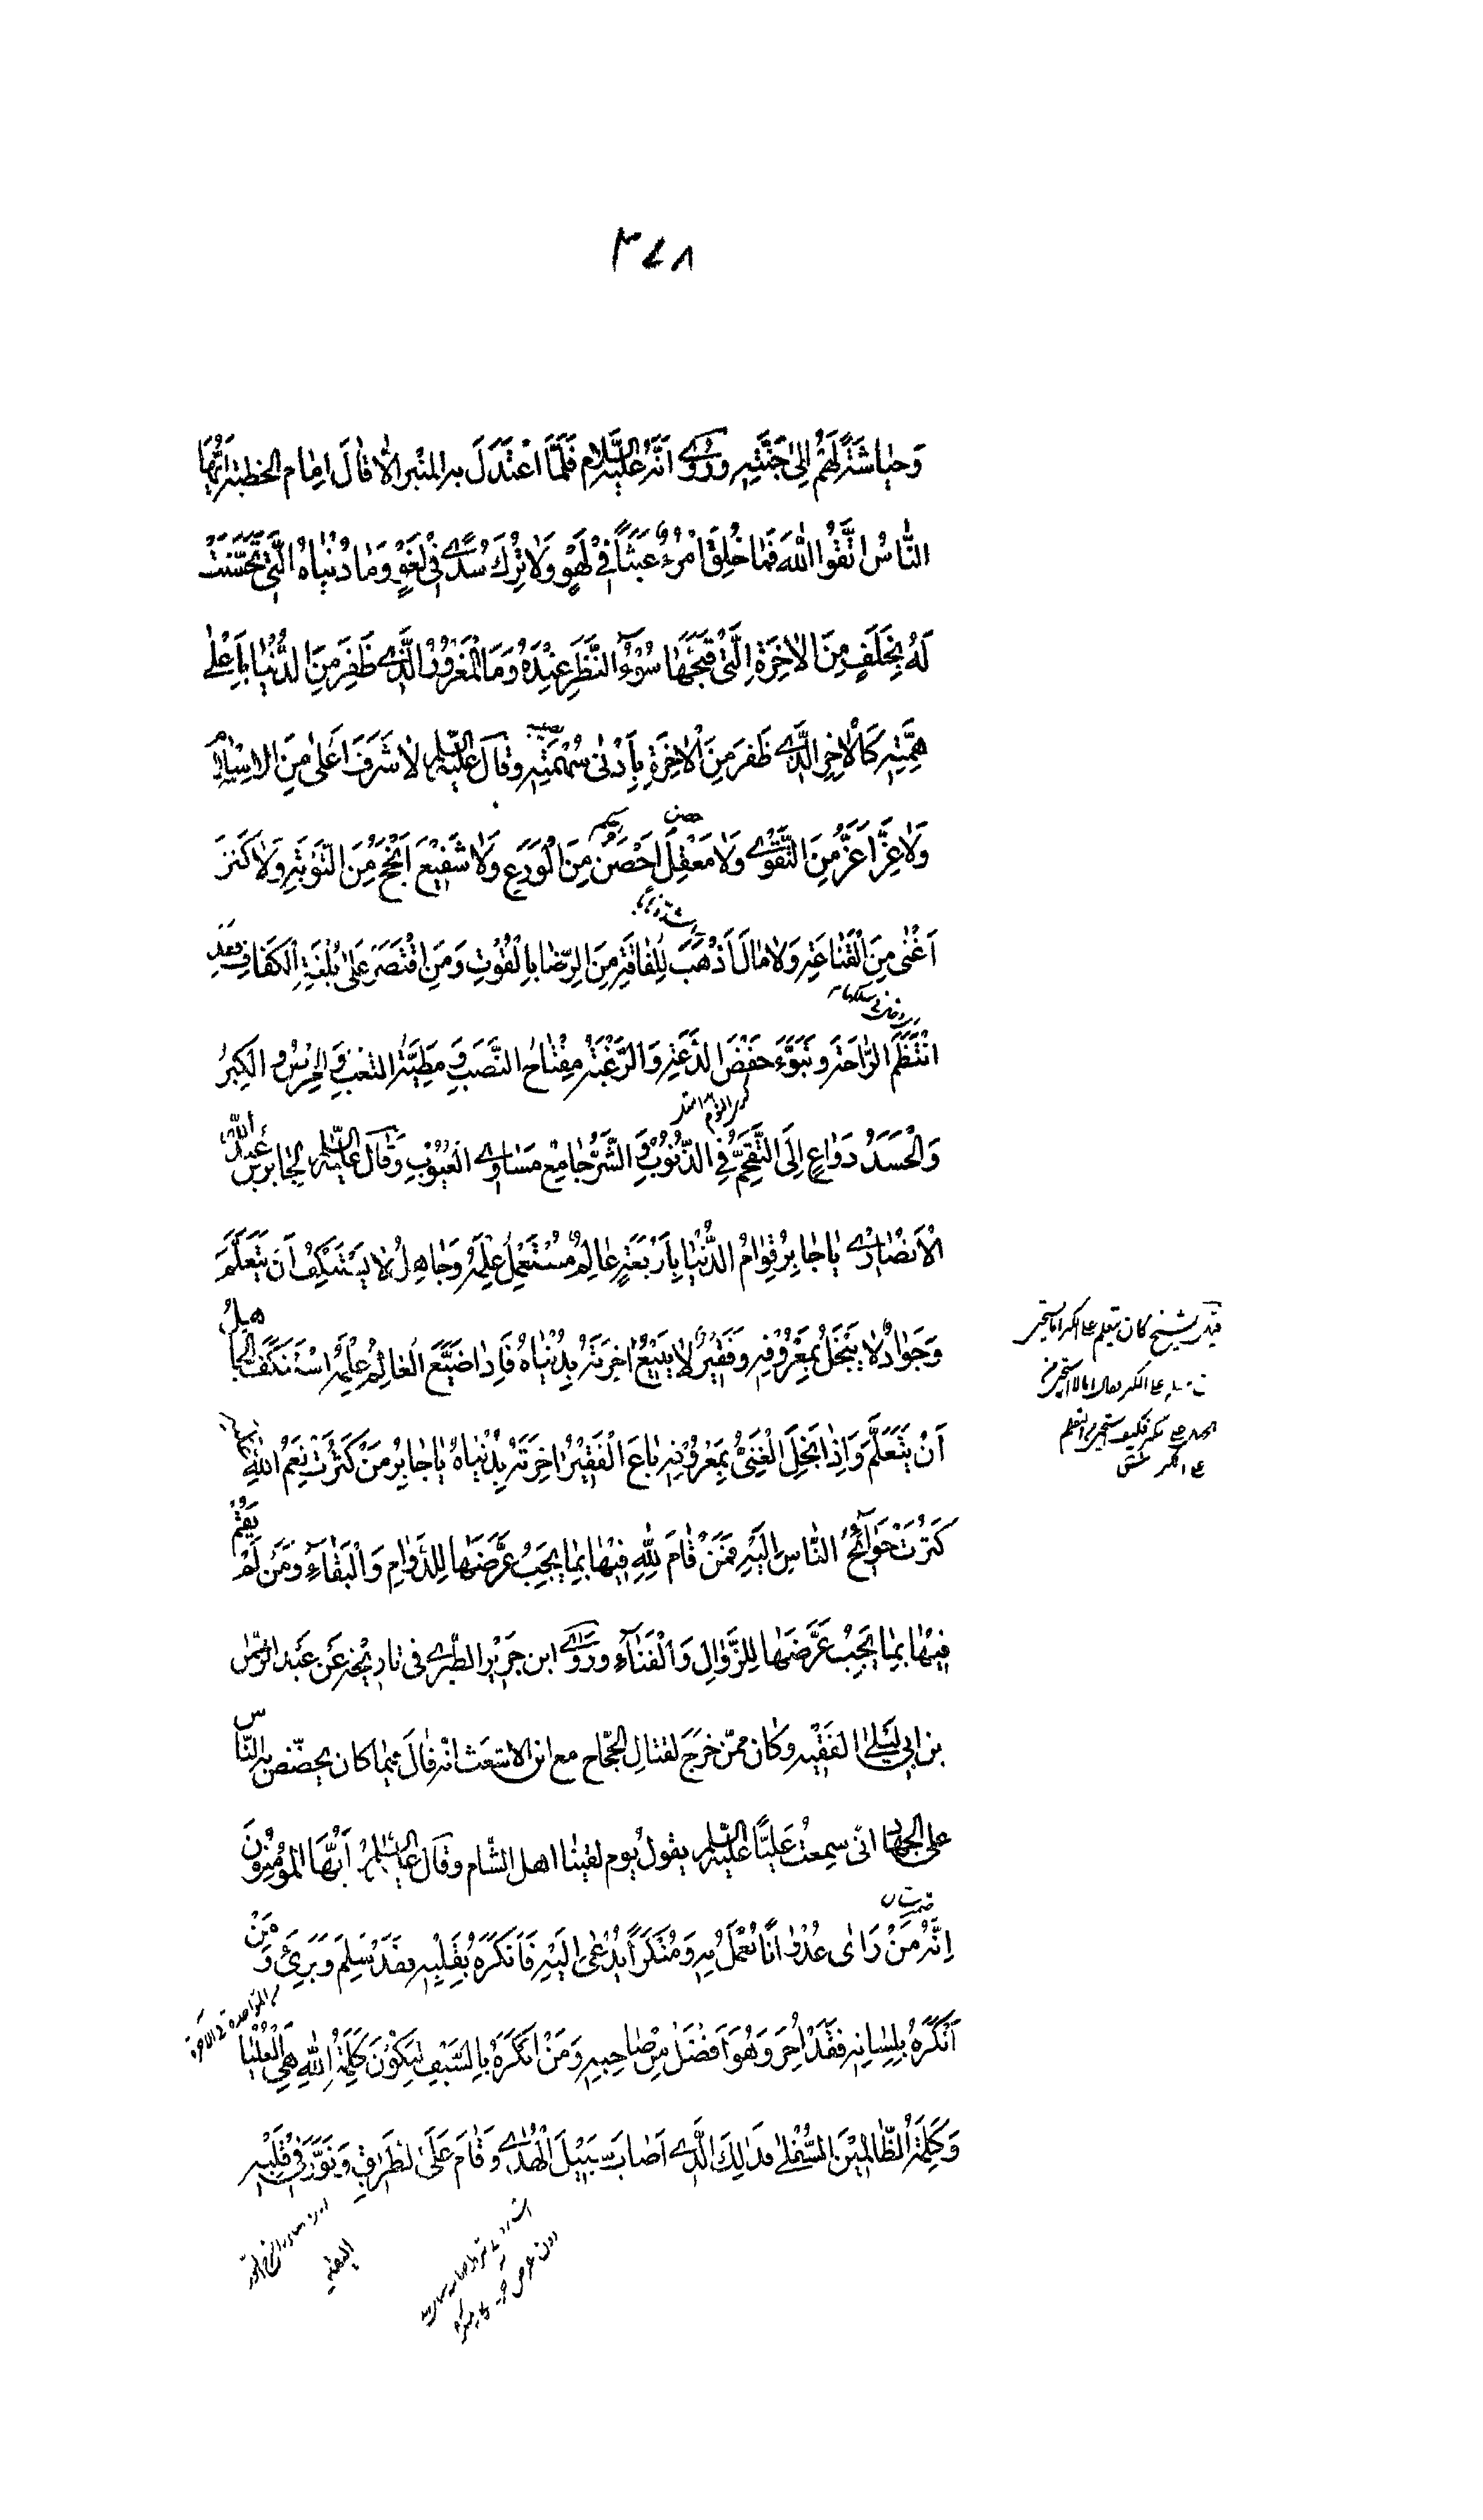 ٣٤٨
وَحِيَاشَةً لَهُمْ اِلىٰ جَنَّتِهِ وَرُوِىَ اَنَّهُ عَلَيْهِ السَّلَام قَلَّمَا اعْتَدَلَ بِهِ المنْبر اِلّا قالَ اِمَام الخطبة اَيُّهَا
النَّاسُ اتَّقُوا اللّٰهَ فَمَا خُلِقَ امْرُءٌ عَبَثًا فَيَلْهُو وَلَا تُرِكَ سُدًى فَيَلْغُوْ وَمَا دُنْيَاهُ الَّتِىْ تَحَسَّنَتْ
لَهُ بِخَلَفٍ مِنَ الْاٰخِرَةِ الَّتِىْ قَبَّحَهَا سُوْءُ النَّظَرِ عِنْدَهُ وَمَا الْمَغْرُورُ الَّذِى ظَفِرَ مِنَ الدُّنْيَا بِاَعْلىٰ
هِمَّتِهِ كَالْاٰخَرِ الَّذِى ظَفِرَ مِنَ الْاٰخِرَةِ بِاَدْنىٰ سُهْمَتِهِ وَقَالَ عَلَيْهِ السَّلم لَا شَرَفَ اَعْلىٰ مِنَ الاِسْلَامِ
وَلَا عِزَّ اَعَزُّ مِنَ التَّقْوٰى وَلَا مَعْقِلَ اَحْصَنُ مِنَ الْوَرَعِ وَلَا شَفِيْعَ اَنْجَحُ مِنَ التَّوْبَةِ وَلَا كَنْزَ
اَغْنىٰ مِنَ الْقَنَاعَةِ وَلَا مَالَ اَذْهَبُ لِلْفَاقَةِ مِنَ الرِّضَا بِالْقُوْتِ وَمَنِ اقْتَصَرَ عَلىٰ بُلْغَةِ الْكَفَافِ فَقَدِ
انْتَظَمَ الرَّاحَةَ وَتَبَوَّءَ خَفْضَ الدَّعَةِ وَالرَّغْبَةُ مِفْتَاحُ النَّصَبِ وَمَطِيَّةُ التَّعَبِ وَالْحِرْصُ وَالكِبْرُ
وَالْحَسَدُ دَوَاعٍ اِلَى التَّقَحُّمِ فِى الذُّنُوْبِ وَالشَّرُّ جَامِعُ مَسَاوِى الْعُيُوْبِ وَقَالَ عَلَيْهِ السَّلم لِجَابِر بن عَبدِ اللّٰه
الْاَنْصَارِىْ يَا جَابِرُ قِوَامُ الدُّنْيَا بِاَرْبَعَةٍ عَالِمٍ مُسْتَعْمِلٍ عِلْمَهُ وَجَاهِلٍ لَا يَسْتَنْكِفُ اَنْ يَتَعَلَّمَ
وَجَوَادٍ لَا يَبْخَلُ بِمَعْرُوْفِهِ وَفَقِيْرٍ لَا يَبِيْعُ اٰخِرَتَهُ بِدُنْيَاهُ فَاِذَا ضَيَّعَ الْعَالِمُ عِلْمَهُ اسْتَنْكَفَ الجَاهِلُ
اَنْ يَتَعَلَّمَ وَاِذَا بَخِلَ الْغَنِىُّ بِمَعْرُوْفِهِ بَاعَ الْفَقِيْرُ اٰخِرَتَهُ بِدُنْيَاهُ يَا جَابِرُ مَنْ كَثُرَتْ نِعَمُ اللّٰهِ
كَثُرَتْ حَوَآئِجُ النَّاسِ اِلَيْهِ فَمَنْ قَامَ لِلّٰهِ فِيْهَا بِمَا يَجِبُ عَرَّضَهَا لِلدَّوَامِ وَالْبَقَاءِ وَمَنْ لَمْ يَقُمْ
فِيْهَا بِمَا يَجِبُ عَرَّضَهَا لِلزَّوَالِ وَالْفَنَاءِ وَرَوٰى ابن جَرِيْر الطّبرى فى تاريْخه عَن عَبْد الرّحمٰن
بن ابى لَيْلىٰ الفَقِيْه وَكَان ممّن خَرَجَ لقتالِ الحَجّاج مع ابن الاشعَث انّه قَالَ فيمَا كَان يحضّض بِه النَّاس
على الجهَاد انّى سمعتُ عَلِيًّا عَلَيْهِ السَّلم يقول يَوم لقيْنَا اهل الشّام وَقَالَ عليه السلم اَيُّهَا المُؤْمِنُوْنَ
اِنَّهُ مَنْ رَاٰى عُدْوَانًا يُعْمَلُ بِهِ وَمُنْكَرًا يُدْعىٰ اِلَيْهِ فَاَنْكَرَهُ بِقَلْبِهِ فَقَدْ سَلِمَ وَبَرِئَ وَمَنْ
اَنْكَرَهُ بِلِسَانِهِ فَقَدْ اُجِرَ وَهُوَ اَفْضَلُ مِنْ صَاحِبِهِ وَمَنْ اَنْكَرَهُ بِالسَّيْفِ لِتَكُوْنَ كَلِمَةُ اللّٰهِ هِىَ الْعُلْيَا
وَكَلِمَةُ الظَّالِمِيْنَ السُّفْلىٰ فَذَالِكَ الَّذِى اَصَابَ سَبِيْلَ الْهُدٰى وَقَامَ عَلَى الطَّرِيْقِ وَنَوَّرَ فِىْ قَلْبِهِ